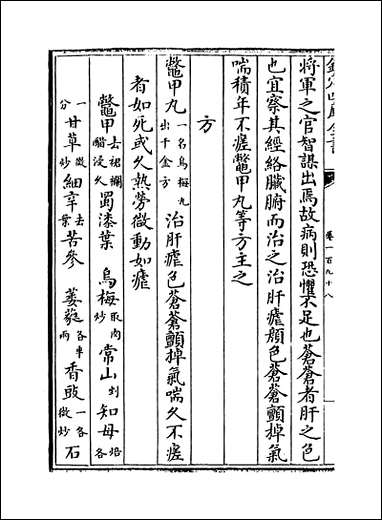 欽定四庫全書
卷一百九十八
將軍之官智謀出焉故病則恐懼不足也蒼蒼者肝之色
也宜察其經絡臟腑而治之治肝瘧顔色蒼蒼顫掉氣
喘積年不瘥鼈甲丸等方主之
方
鼈甲丸一名烏梅丸出千金方治肝瘧色蒼蒼顫掉氣喘久不瘥
者如死或久熱勞微動如瘧
鼈甲去裙襴醋浸炙 蜀漆葉 烏梅取肉炒 常山剉 知母焙各
一分 甘草微炒 細辛去葉 苦參 葳蕤各半兩 香豉一合微炒 石